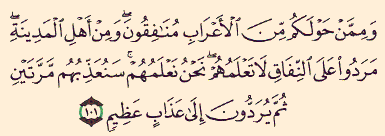 وَمِمَّنْ حَوْلَكُم مِّنَ ٱلْأَعْرَابِ مُنَٰفِقُونَ ۖ وَمِنْ أَهْلِ ٱلْمَدِينَةِ ۖ
مَرَدُوا۟ عَلَى ٱلنِّفَاقِ لَا تَعْلَمُهُمْ ۖ نَحْنُ نَعْلَمُهُمْ ۚ سَنُعَذِّبُهُم مَّرَّتَيْنِ
ثُمَّ يُرَدُّونَ إِلَىٰ عَذَابٍ عَظِيمٍ ١٠١